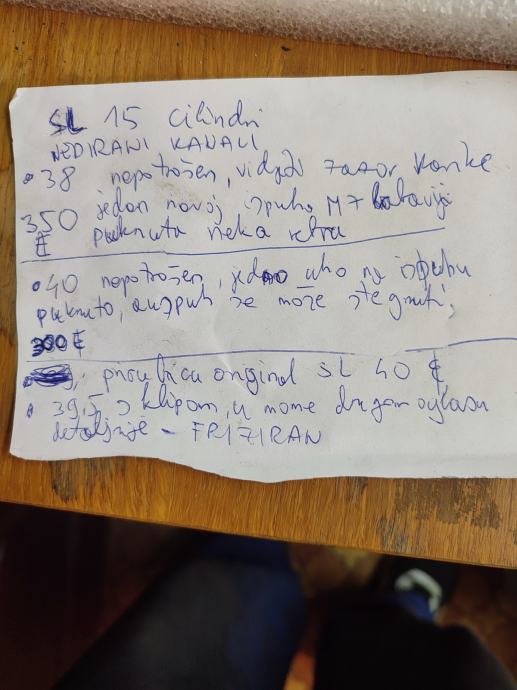 SL 15 cilindri
NEDIRANI KANALI
• 38 nepotrošen, vidjeti zazor karike
350 jedan navoj ispuha M7
€ puknuta neka rebra
• 40 nepotrošen, jedno uho na ispuhu
puknuto, auspuh se može stegnuti,
300 €
prirubnica original SL 40 €
• 39,5 s klipom, u mome drugom oglasu
detaljnije - FRIZIRAN